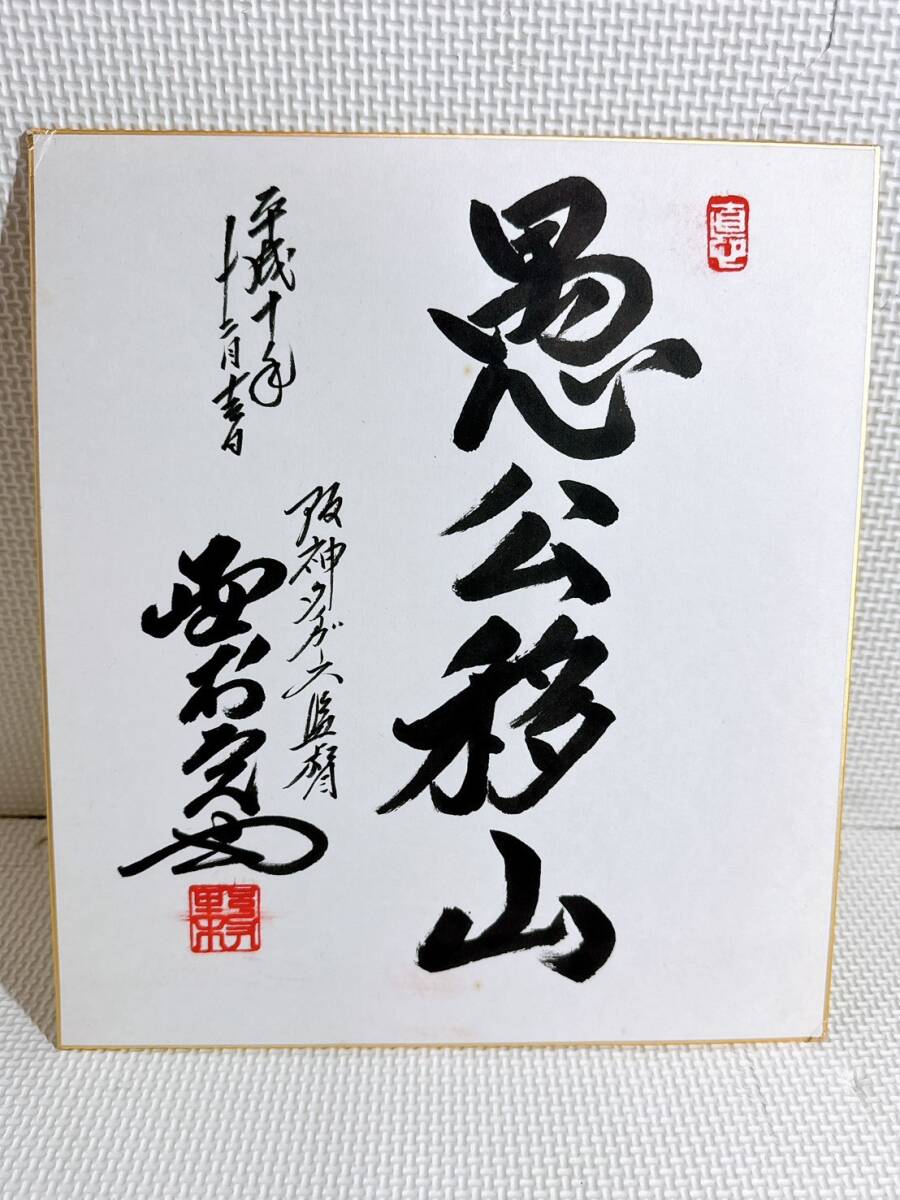 愚公移山
平成十年
十二月吉日
阪神タイガース監督
野村克也
野村